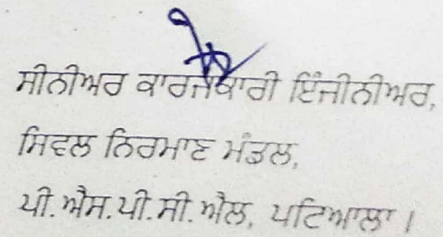 ਸੀਨੀਅਰ ਕਾਰਜਕਾਰੀ ਇੰਜੀਨੀਅਰ,
ਸਿਵਲ ਨਿਰਮਾਣ ਮੰਡਲ,
ਪੀ.ਐਸ.ਪੀ.ਸੀ.ਐਲ, ਪਟਿਆਲਾ।